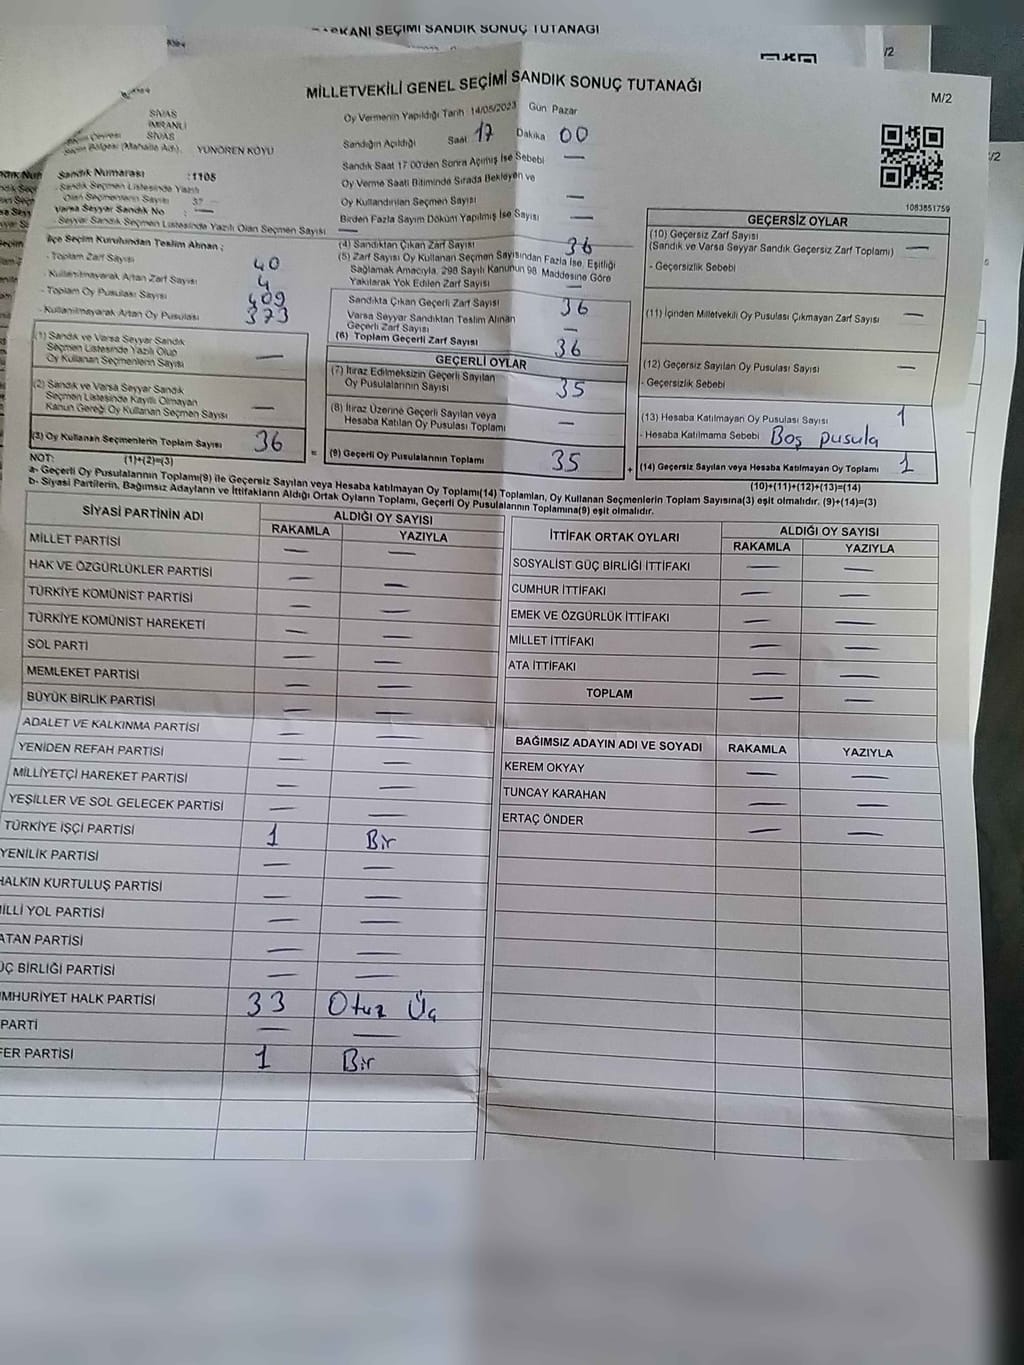 KANI SEÇİMİ SANDIK SONUÇ TUTANAĞI
/2
MİLLETVEKİLİ GENEL SEÇİMİ SANDIK SONUÇ TUTANAĞI
M/2
/2
SİVAS
İMRANLI
Seçim Çevresi SİVAS
Seçim Bölgesi (Mahalle Adı) YÜNÖREN KÖYÜ
Sandık Numarası :1105
Sandık Seçmen Listesinde Yazılı
Olan Seçmenlerin Sayısı 37
Varsa Seyyar Sandık No —
Seyyar Sandık Seçmen Listesinde Yazılı Olan Seçmen Sayısı —
İlçe Seçim Kurulundan Teslim Alınan ;
- Toplam Zarf Sayısı 40
- Kullanılmayarak Artan Zarf Sayısı 4
- Toplam Oy Pusulası Sayısı 409
- Kullanılmayarak Artan Oy Pusulası 373
(1) Sandık ve Varsa Seyyar Sandık
Seçmen Listesinde Yazılı Olup
Oy Kullanan Seçmenlerin Sayısı —
(2) Sandık ve Varsa Seyyar Sandık
Seçmen Listesinde Kayıtlı Olmayan
Kanun Gereği Oy Kullanan Seçmen Sayısı —
(3) Oy Kullanan Seçmenlerin Toplam Sayısı 36
Oy Vermenin Yapıldığı Tarih 14/05/2023 Gün Pazar
Sandığın Açıldığı Saat 17 Dakika 00
Sandık Saat 17.00'den Sonra Açılmış İse Sebebi —
Oy Verme Saati Bitiminde Sırada Bekleyen ve
Oy Kullandırılan Seçmen Sayısı —
Birden Fazla Sayım Döküm Yapılmış İse Sayısı —
(4) Sandıktan Çıkan Zarf Sayısı 36
(5) Zarf Sayısı Oy Kullanan Seçmen Sayısından Fazla İse, Eşitliği
Sağlamak Amacıyla, 298 Sayılı Kanunun 98. Maddesine Göre
Yakılarak Yok Edilen Zarf Sayısı —
Sandıkta Çıkan Geçerli Zarf Sayısı 36
Varsa Seyyar Sandıktan Teslim Alınan
Geçerli Zarf Sayısı —
(6) Toplam Geçerli Zarf Sayısı 36
GEÇERLİ OYLAR
(7) İtiraz Edilmeksizin Geçerli Sayılan
Oy Pusulalarının Sayısı 35
(8) İtiraz Üzerine Geçerli Sayılan veya
Hesaba Katılan Oy Pusulası Toplamı —
= (9) Geçerli Oy Pusulalarının Toplamı 35
1083851759
GEÇERSİZ OYLAR
(10) Geçersiz Zarf Sayısı —
(Sandık ve Varsa Seyyar Sandık Geçersiz Zarf Toplamı)
- Geçersizlik Sebebi
(11) İçinden Milletvekili Oy Pusulası Çıkmayan Zarf Sayısı —
(12) Geçersiz Sayılan Oy Pusulası Sayısı —
- Geçersizlik Sebebi
(13) Hesaba Katılmayan Oy Pusulası Sayısı 1
- Hesaba Katılmama Sebebi Boş pusula
+ (14) Geçersiz Sayılan veya Hesaba Katılmayan Oy Toplamı 1
NOT: (1)+(2)=(3)
(10)+(11)+(12)+(13)=(14)
a- Geçerli Oy Pusulalarının Toplamı(9) ile Geçersiz Sayılan veya Hesaba katılmayan Oy Toplamı(14) Toplamları, Oy Kullanan Seçmenlerin Toplam Sayısına(3) eşit olmalıdır. (9)+(14)=(3)
b- Siyasi Partilerin, Bağımsız Adayların ve İttifakların Aldığı Ortak Oyların Toplamı, Geçerli Oy Pusulalarının Toplamına(9) eşit olmalıdır.
SİYASİ PARTİNİN ADI ALDIĞI OY SAYISI
RAKAMLA YAZIYLA
MİLLET PARTİSİ — —
HAK VE ÖZGÜRLÜKLER PARTİSİ — —
TÜRKİYE KOMÜNİST PARTİSİ — —
TÜRKİYE KOMÜNİST HAREKETİ — —
SOL PARTİ — —
MEMLEKET PARTİSİ — —
BÜYÜK BİRLİK PARTİSİ — —
ADALET VE KALKINMA PARTİSİ — —
YENİDEN REFAH PARTİSİ — —
MİLLİYETÇİ HAREKET PARTİSİ — —
YEŞİLLER VE SOL GELECEK PARTİSİ — —
TÜRKİYE İŞÇİ PARTİSİ 1 Bir
YENİLİK PARTİSİ — —
HALKIN KURTULUŞ PARTİSİ — —
MİLLİ YOL PARTİSİ — —
ATAN PARTİSİ — —
ÜÇ BİRLİĞİ PARTİSİ — —
MHURİYET HALK PARTİSİ 33 Otuz Üç
PARTİ — —
FER PARTİSİ 1 Bir
İTTİFAK ORTAK OYLARI ALDIĞI OY SAYISI
RAKAMLA YAZIYLA
SOSYALİST GÜÇ BİRLİĞİ İTTİFAKI — —
CUMHUR İTTİFAKI — —
EMEK VE ÖZGÜRLÜK İTTİFAKI — —
MİLLET İTTİFAKI — —
ATA İTTİFAKI — —
TOPLAM — —
BAĞIMSIZ ADAYIN ADI VE SOYADI RAKAMLA YAZIYLA
KEREM OKYAY — —
TUNCAY KARAHAN — —
ERTAÇ ÖNDER — —